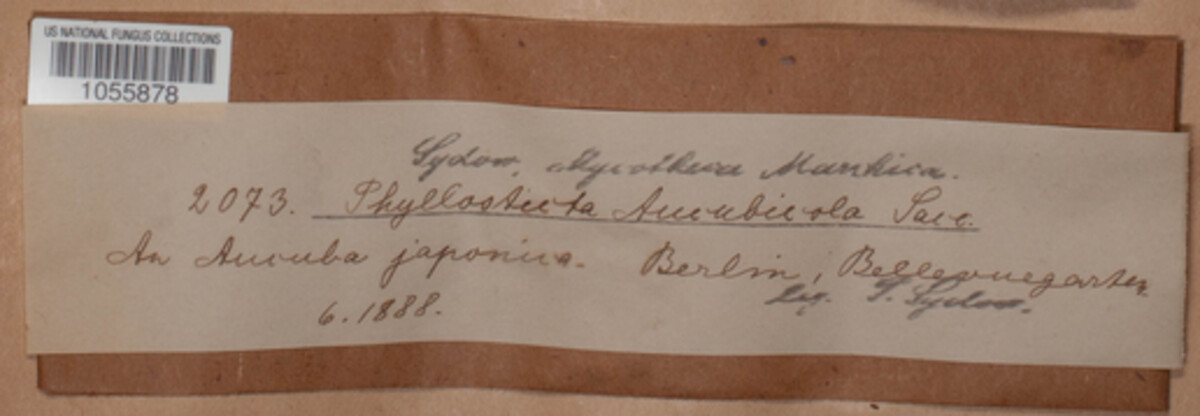 US NATIONAL FUNGUS COLLECTIONS
1055878
Sydow, Mycotheca Marchica.
2073. Phyllosticta Aucubicola Sacc.
An Aucuba japonica. Berlin, Bellevuegarten
6.1888. leg. P. Sydow.